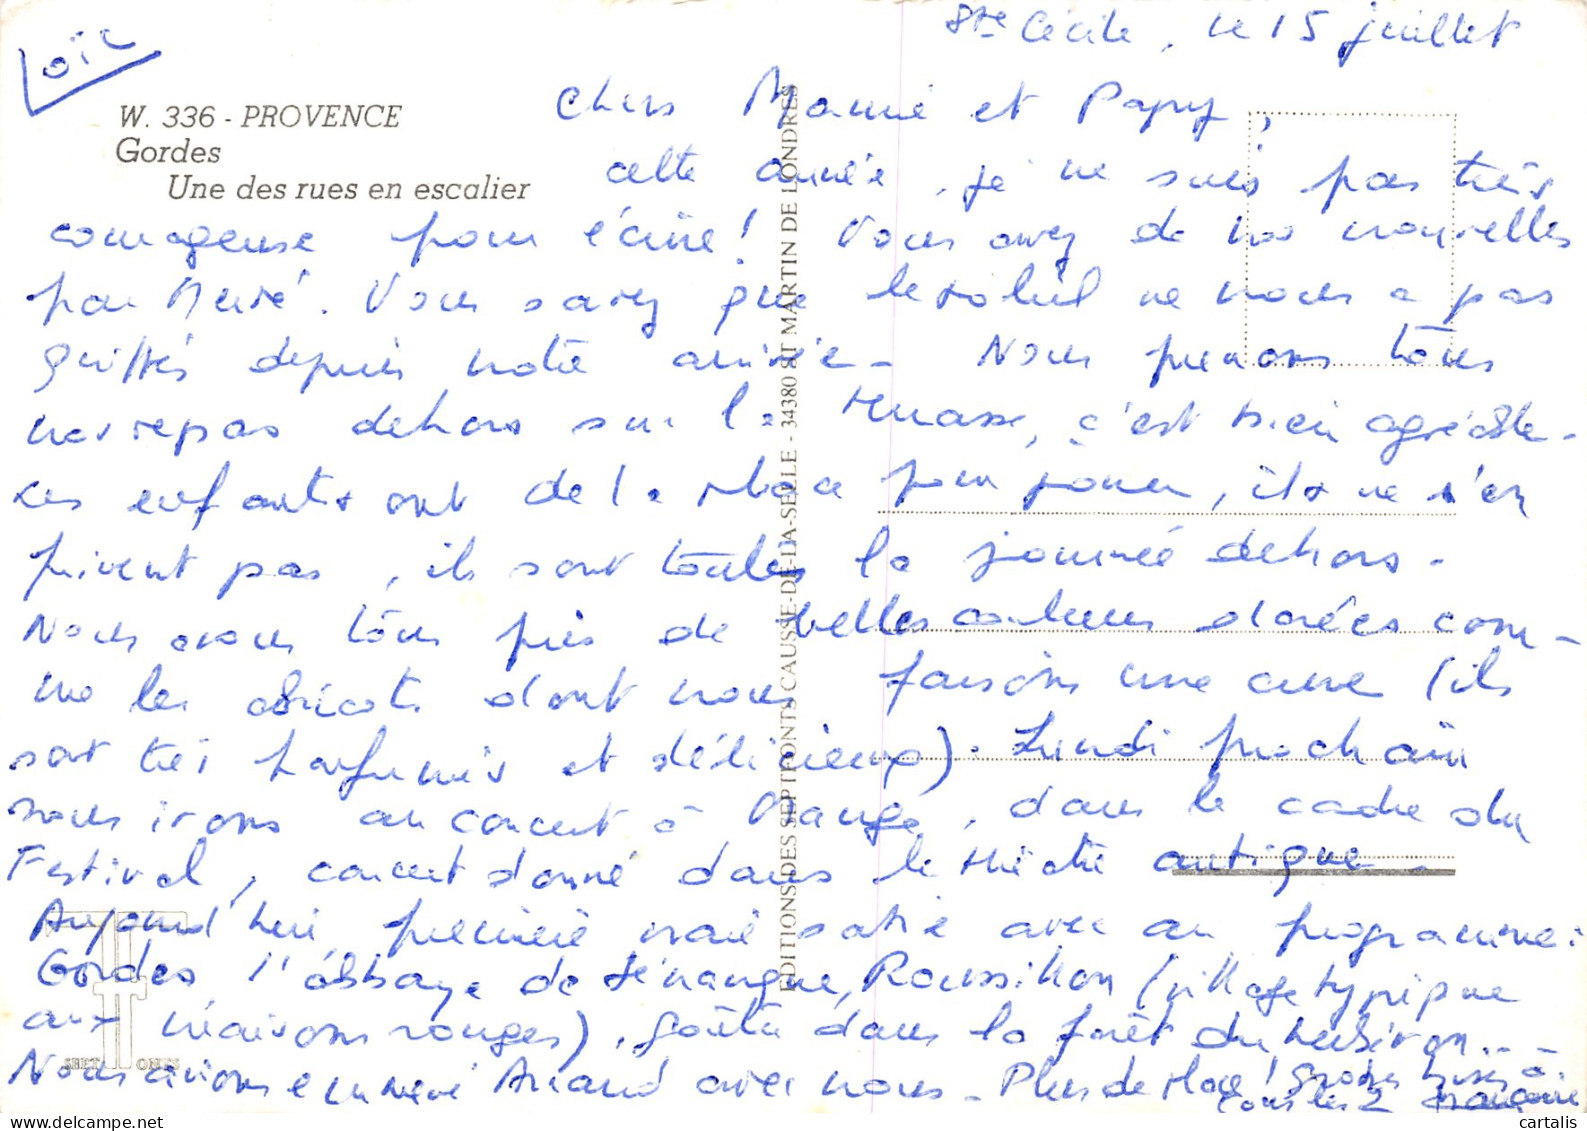 Loïc
Ste Cécile, le 15 juillet
W. 336 - PROVENCE
Gordes
Une des rues en escalier
Chers Mamie et Papy,
cette année, je ne suis pas très
courageuse pour écrire ! Vous avez de nos nouvelles
par Hervé. Vous savez que le soleil ne nous a pas
quittés depuis notre arrivée - Nous prenons tous
nos repas dehors sur la terrasse, c'est bien agréable -
Les enfants ont de la place pour jouer, ils ne s'en
privent pas, ils sont toutes la journée dehors -
Nous avons tous pris de belles couleurs dorées com-
me les abricots dont nous faisons une cure (ils
sont très parfumés et délicieux). Lundi prochain
nous irons au concert à Orange, dans le cadre du
Festival, concert donné dans le théâtre antique -
Aujourd'hui, première vraie sortie avec au programme :
Gordes, l'abbaye de Sénanque, Roussillon (village typique
aux maisons rouges), goûter dans la forêt du Luberon...
Nous avions emmené Arnaud avec nous - Plus de place ! Grosses bises à
tous les 2 Françoise
EDITIONS DES SEPT PONTS CAUSSE-DE-LA-SELLE - 34380 ST MARTIN DE LONDRES
SEPT PONTS
cartalis